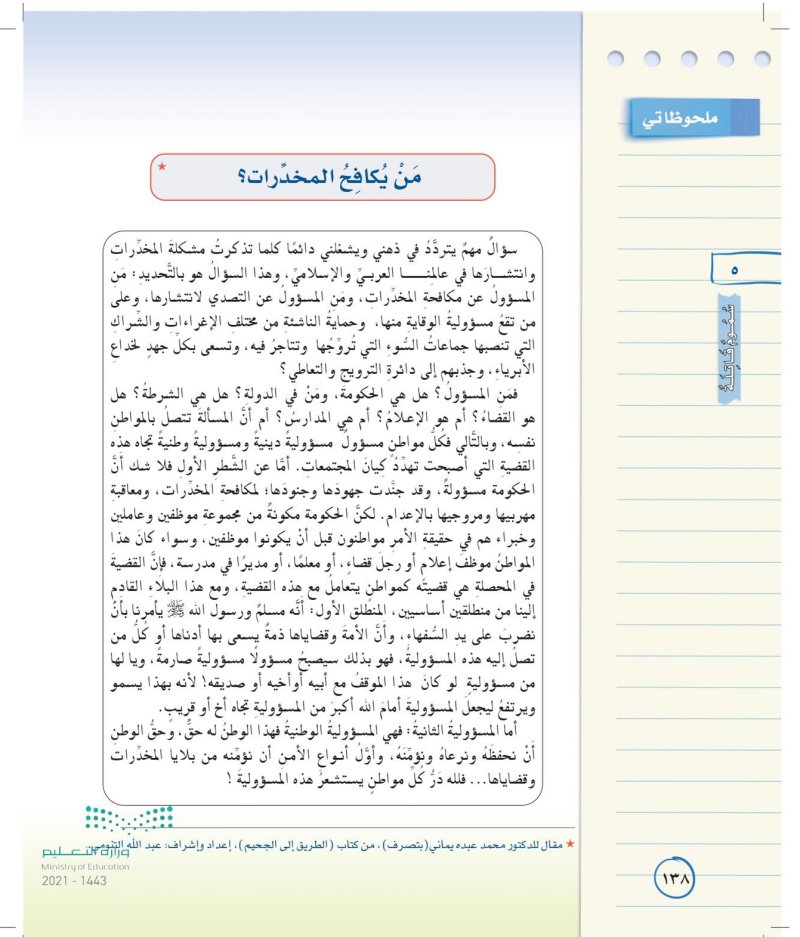 ملحوظاتي
٥
سُمُومٌ قَاتِلَةٌ
مَنْ يُكافِحُ المخدِّرات؟ *
سؤالٌ مهمٌ يتردَّدُ في ذهني ويشغلني دائمًا كلما تذكرتُ مشكلةَ المخدِّراتِ
وانتشارَها في عالمِنـــا العربيِّ والإسلاميِّ، وهذا السؤالُ هو بالتَّحديدِ: مَنِ
المسؤولُ عن مكافحةِ المخدِّراتِ، ومَن المسؤولُ عن التصدي لانتشارها، وعلى
من تقعُ مسؤوليةُ الوقايةِ منها، وحمايةُ الناشئةِ من مختلفِ الإغراءاتِ والشِّراكِ
التي تنصبها جماعاتُ السُّوءِ التي تُروِّجُها وتتاجرُ فيه، وتسعى بكلِّ جهدٍ لخداعِ
الأبرياءِ، وجذبِهم إلى دائرةِ الترويجِ والتعاطي؟
فمَنِ المسؤولُ؟ هل هي الحكومةُ، ومَنْ في الدولةِ؟ هل هي الشرطةُ؟ هل
هو القضاءُ؟ أم هو الإعلامُ؟ أم هي المدارسُ؟ أم أنَّ المسألةَ تتصلُ بالمواطنِ
نفسِه، وبالتَّالي فكلُّ مواطنٍ مسؤولٌ مسؤوليةً دينيةً ومسؤوليةً وطنيةً تجاه هذه
القضيةِ التي أصبحت تهدِّدُ كيانَ المجتمعاتِ. أمَّا عن الشَّطرِ الأولِ فلا شك أنَّ
الحكومةَ مسؤولةٌ، وقد جنَّدت جهودَها وجنودَها؛ لمكافحةِ المخدِّرات، ومعاقبةِ
مهربيها ومروجيها بالإعدام. لكنَّ الحكومةَ مكونةٌ من مجموعةِ موظفين وعاملين
وخبراء هم في حقيقةِ الأمرِ مواطنون قبل أنْ يكونوا موظفين، وسواء كانَ هذا
المواطنُ موظفَ إعلامٍ أو رجلَ قضاءٍ، أو معلمًا، أو مديرًا في مدرسة، فإنَّ القضيةَ
في المحصلةِ هي قضيتُه كمواطنٍ يتعاملُ مع هذه القضيةِ، ومع هذا البلاءِ القادِمِ
إلينا من منطلقين أساسيين، المنطلق الأول: أنَّه مسلمٌ ورسولُ الله ﷺ يأمرنا بأنْ
نضربَ على يدِ السُّفهاءِ، وأنَّ الأمةَ وقضاياها ذمةٌ يسعى بها أدناها أو كلُّ من
تصلُ إليه هذه المسؤوليةُ، فهو بذلك سيصبحُ مسؤولًا مسؤوليةً صارمةً، ويا لها
من مسؤوليةٍ لو كانَ هذا الموقفُ مع أبيه أوأخيه أو صديقِه! لأنه بهذا يسمو
ويرتفعُ ليجعلَ المسؤوليةَ أمامَ اللهِ أكبرَ من المسؤوليةِ تجاه أخٍ أو قريبٍ.
أما المسؤوليةُ الثانيةُ: فهي المسؤوليةُ الوطنيةُ فهذا الوطنُ له حقٌّ، وحقُّ الوطنِ
أنْ نحفظَهُ ونرعاهُ ونؤمِّنَهُ، وأوَّلُ أنـواعِ الأمنِ أن نؤمِّنه من بلايا المخدِّراتِ
وقضاياها... فلله دَرُّ كلِّ مواطنٍ يستشعرُ هذه المسؤوليةَ !
* مقال للدكتور محمد عبده يماني(بتصرف)، من كتاب (الطريق إلى الجحيم)، إعداد وإشراف: عبد الله التنومي.
وزارة التعـــليم
Ministry of Education
2021 - 1443
١٣٨